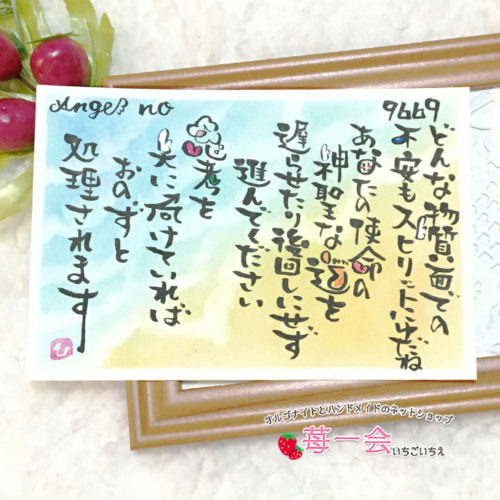 Angel no
9669
どんな物質面での
不安もスピリットにゆだね
あなたの使命の
神聖な道を
遅らせたり後回しにせず
進んでください
思考を
天に向けていれば
おのずと
処理されます
ひ
オルゴナイトとハンドメイドのネットショップ
苺一会 いちごいちえ